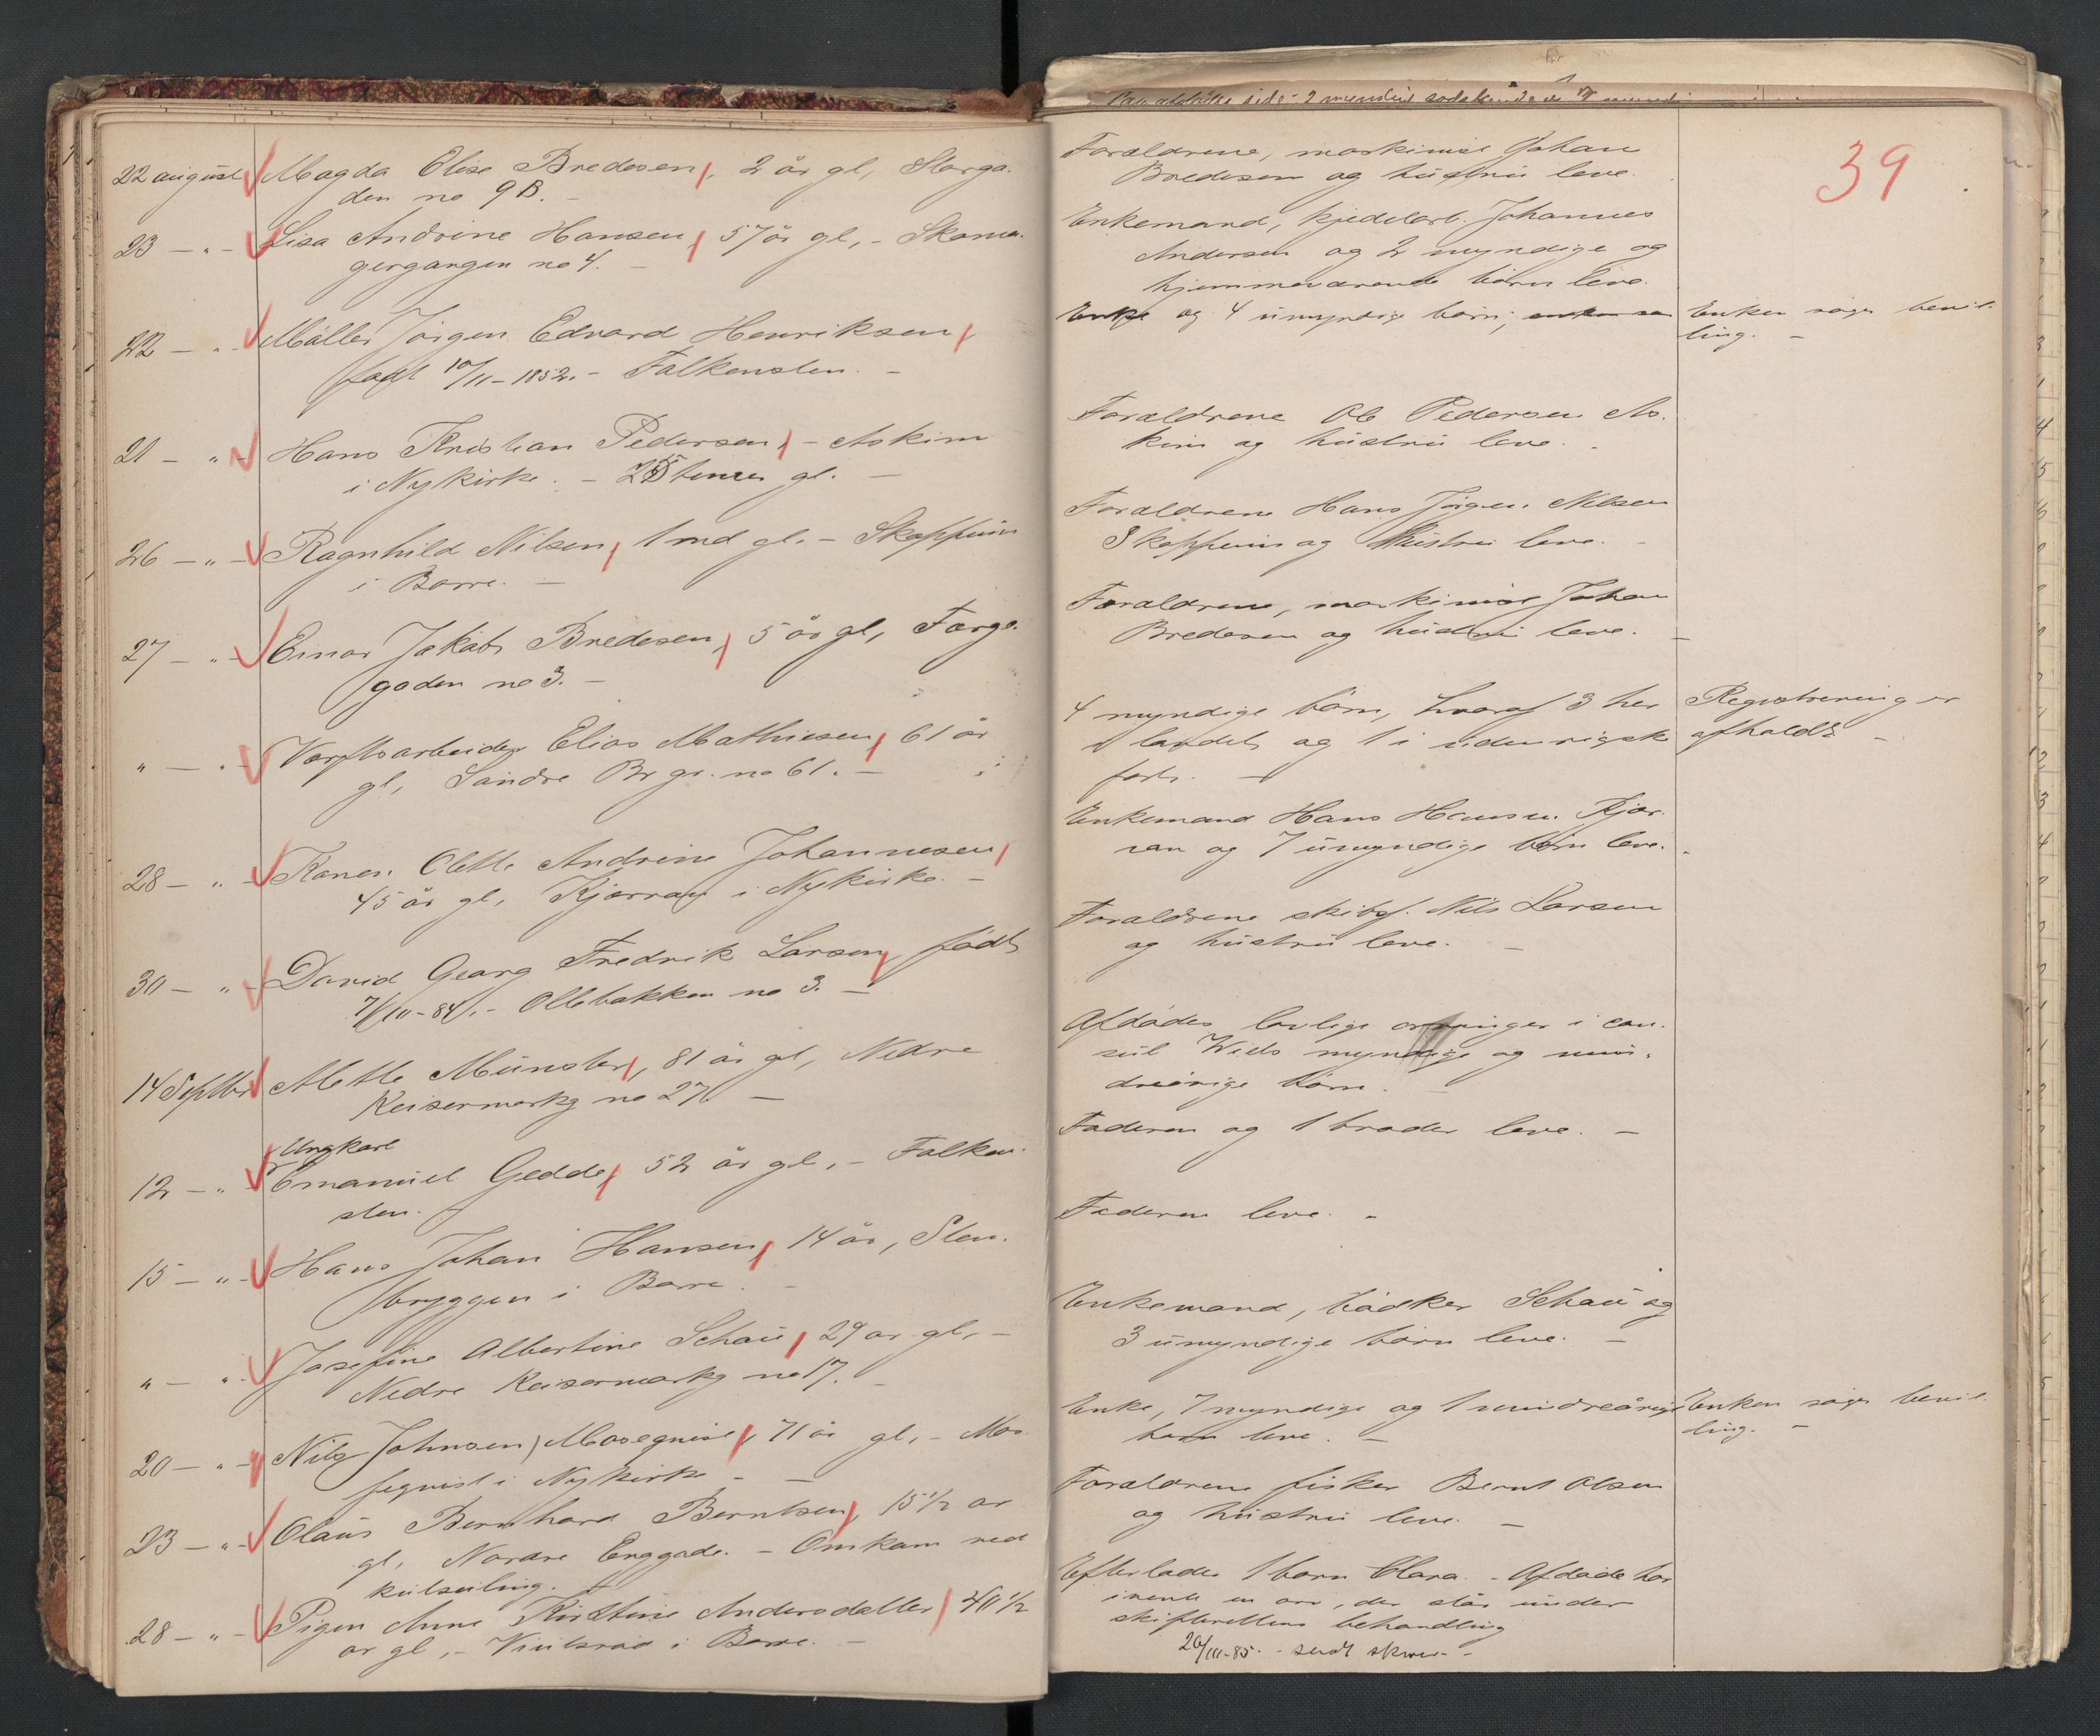 22 august Magda Elise Bredesen, 2 år gl, Storga-
den no 9B. -
23 - " - Lisa Andrine Hansen, 57 år gl, - Skoma-
gergangen no 4. -
22 - " - Møller Jørgen Edvard Henriksen,
født 10/11 - 1852. - Falkensten. -
21 - " - Hans Kristian Pedersen, - Askim
i Nykirke. - 25 timer gl. -
26 - " - Ragnhild Nilsen, 1 md gl. - Skoppum
i Borre. -
27 - " - Einar Jakob Bredesen, 5 år gl, Farge-
gaden no 3. -
" - " - Værftsarbeider Elias Mathiesen, 61 år
gl, Søndre Br gr. no 61. -
28 - " - Konen Olette Andrine Johannesen,
45 år gl, Kjørran i Nykirke. -
30 - " - David Georg Fredrik Larsen, født
7/III - 84. - Ollebakken no 3. -
14 Septbr Mette Münster, 81 år gl, Nedre
Keisermarkg no 27. -
Ungkarl
12 - " - Emanuel Gedde, 52 år gl, - Falken-
sten. -
15 - " - Hans Johan Hansen, 14 år, Sten-
bryggen i Borre. -
" - " - Josefine Albertine Schau, 29 år gl, -
Nedre Keisermarkg no 17. -
20 - " - Nils Johnsen, 71 år gl, -
i Nykirke - -
23 - " - Olaus Bernhard Berntsen, 15 1/2 år
gl, Nordre Enggade. - Omkom ved
kulseiling.
28 - " - Pigen Anne Kirstine Andersdatter, 40 1/2
år gl, - i Borre. -
39
Forældrene, maskinist Johan
Bredesen og hustru leve.
Enkemand, kjedelarb. Johannes
Andersen og 2 myndige og
hjemmeværende børn leve.
Enke og 4 umyndige børn;
Enken søger bevil-
ling. -
Forældrene Ole Pedersen As-
kim og hustru leve. -
Forældrene Hans Jørgen Nilsen
Skoppum og hustru leve. -
Forældrene, maskinist Johan
Bredesen og hustru leve. -
4 myndige børn, hvoraf 3 her
i landet og 1 i udenrigsk
fart. -
Registrering er
afholdt -
Enkemand Hans Hansen Kjør-
ran og 7 umyndige børn leve. -
Forældrene skibsf. Nils Larsen
og hustru leve. -
Afdødes lovlige arvinger i con-
sul Wiels myndige og min-
dreårige børn. -
Faderen og 1 broder leve. -
Faderen leve. -
Enkemand, bødker Schau og
3 umyndige børn leve. -
Enke, 7 myndige og 1 mindreårige
børn leve. -
Enken søger bevil-
ling. -
Forældrene fisker Bernt Olsen
og hustru leve. -
Efterlader 1 barn Clara. - Afdøde har
ivente en arv, der står under
skifterettens behandling
20/III - 85. - sendt